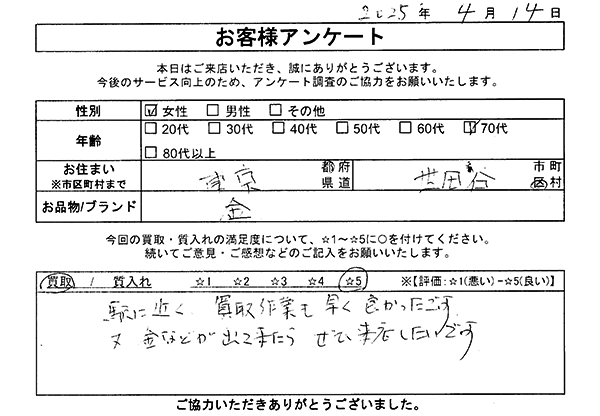 2025年 4月 14日
お客様アンケート
本日はご来店いただき、誠にありがとうございます。
今後のサービス向上のため、アンケート調査のご協力をお願いいたします。
性別 ☑女性 □男性 □その他
年齢 □20代 □30代 □40代 □50代 □60代 ☑70代
□80代以上
お住まい 東京 都府県道 世田谷 市町区村
※市区町村まで
お品物/ブランド 金
今回の買取・質入れの満足度について、☆1～☆5に○を付けてください。
続いてご意見・ご感想などのご記入をお願いいたします。
買取 / 質入れ ☆1 ☆2 ☆3 ☆4 ☆5 ※【評価:☆1(悪い)-☆5(良い)】
駅に近く 買取作業も早く良かったです
又 金などが出て来たら ぜひ来店したいです
ご協力いただきありがとうございました。